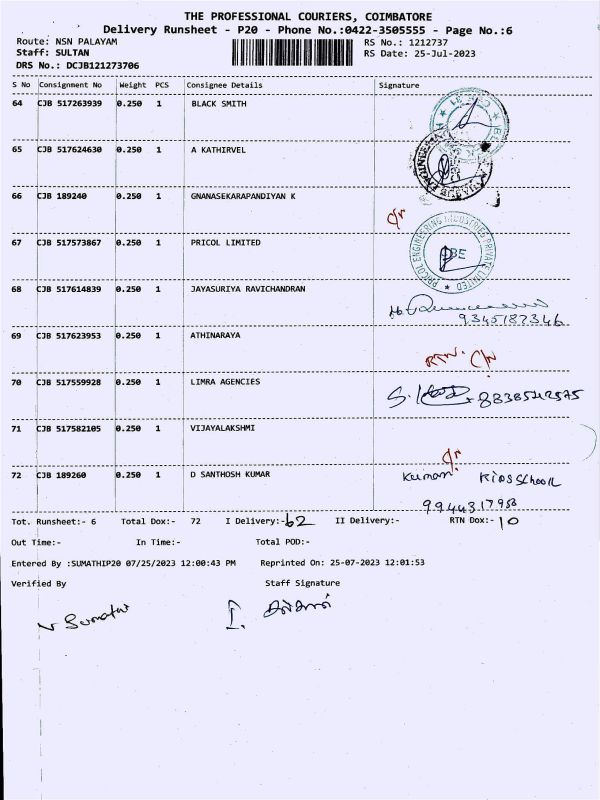 THE PROFESSIONAL COURIERS, COIMBATORE
Delivery Runsheet - P20 - Phone No.:0422-3505555 - Page No.:6
Route: NSN PALAYAM RS No.: 1212737
Staff: SULTAN RS Date: 25-Jul-2023
DRS No.: DCJB121273706
S No Consignment No Weight PCS Consignee Details Signature
64 CJB 517263939 0.250 1 BLACK SMITH
65 CJB 517624630 0.250 1 A KATHIRVEL
66 CJB 189240 0.250 1 GNANASEKARAPANDIYAN K
67 CJB 517573867 0.250 1 PRICOL LIMITED
PRICOL ENGINEERING INDUSTRIES PRIVATE LIMITED
68 CJB 517614839 0.250 1 JAYASURIYA RAVICHANDRAN
9345187346
69 CJB 517623953 0.250 1 ATHINARAYA
RTN. C/N
70 CJB 517559928 0.250 1 LIMRA AGENCIES
71 CJB 517582105 0.250 1 VIJAYALAKSHMI
72 CJB 189260 0.250 1 D SANTHOSH KUMAR
Kumar KIDS SCHOOL
9944317958
Tot. Runsheet:- 6 Total Dox:- 72 I Delivery:- 62 II Delivery:- RTN Dox:- 10
Out Time:- In Time:- Total POD:-
Entered By :SUMATHIP20 07/25/2023 12:00:43 PM Reprinted On: 25-07-2023 12:01:53
Verified By Staff Signature